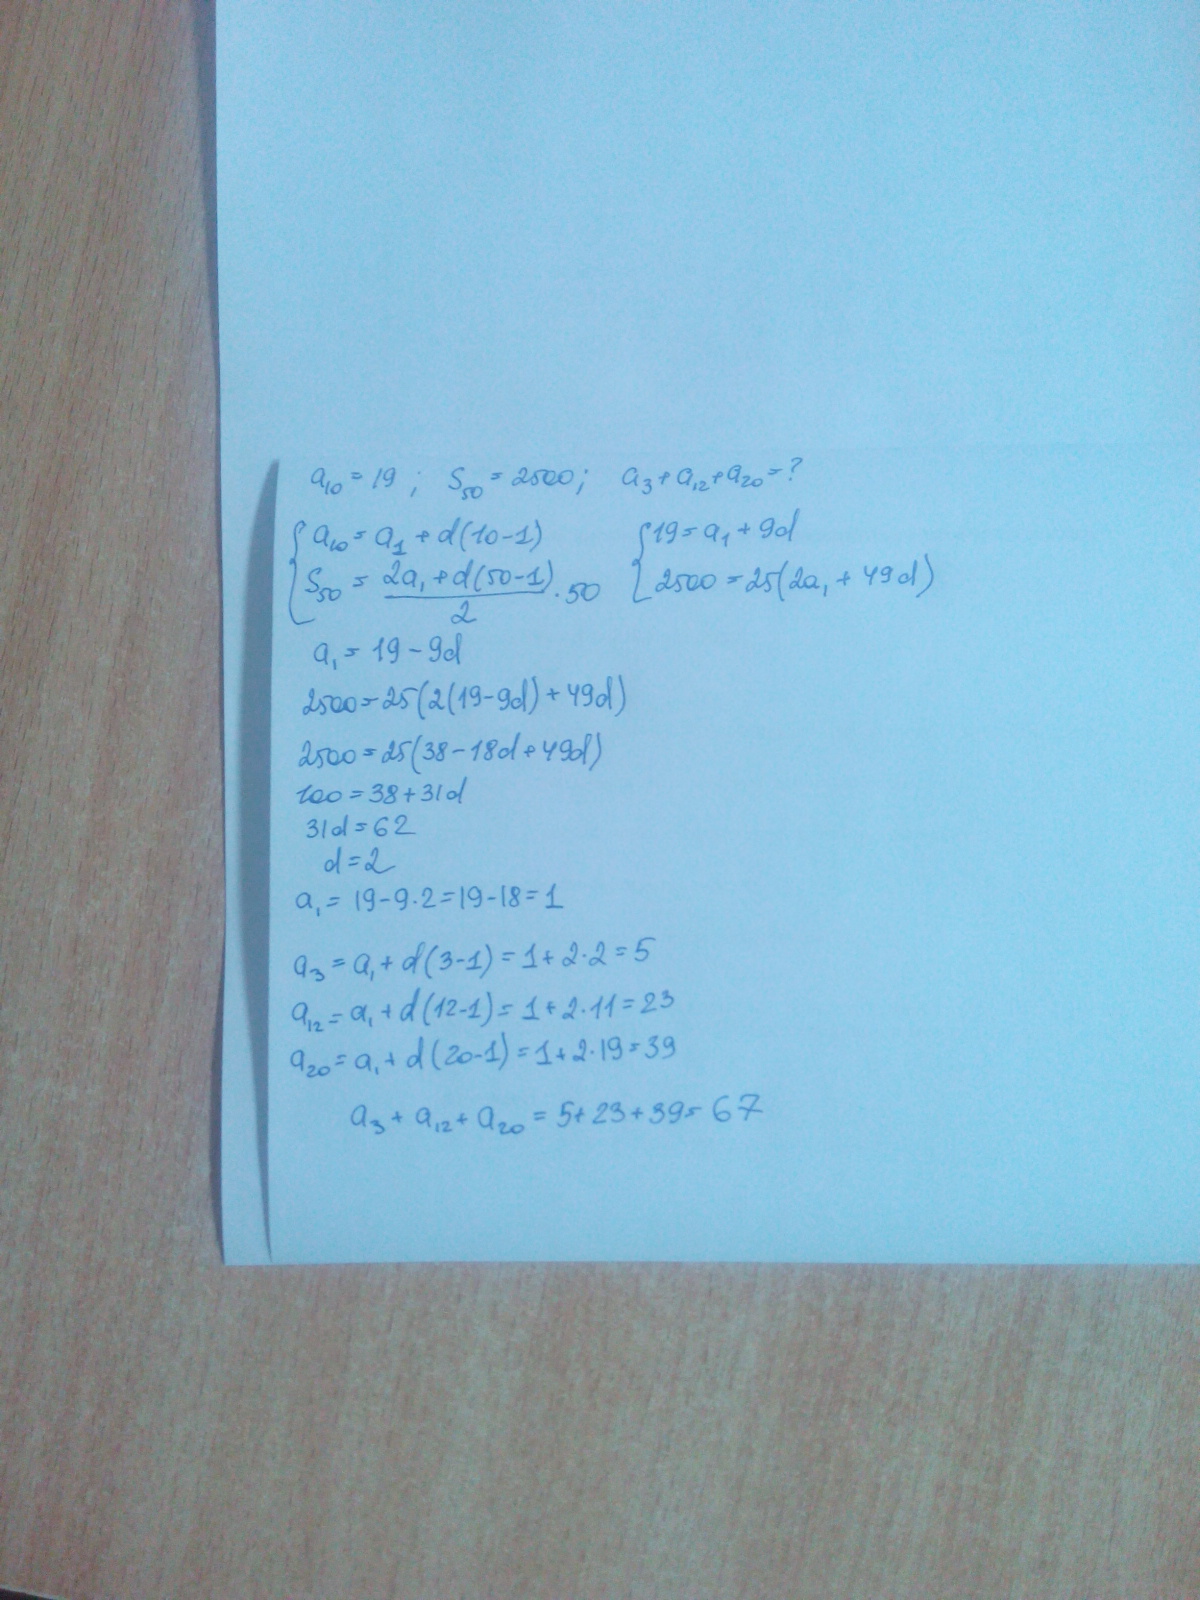 a₁₀ = 19 ; S₅₀ = 2500; a₃+a₁₂+a₂₀ = ?
{ a₁₀ = a₁ + d(10-1) { 19 = a₁ + 9d
S₅₀ = (2a₁ + d(50-1))/2 · 50 2500 = 25(2a₁ + 49d)
a₁ = 19 - 9d
2500 = 25(2(19-9d) + 49d)
2500 = 25(38 - 18d + 49d)
100 = 38 + 31d
31d = 62
d = 2
a₁ = 19 - 9·2 = 19 - 18 = 1
a₃ = a₁ + d(3-1) = 1 + 2·2 = 5
a₁₂ = a₁ + d(12-1) = 1 + 2·11 = 23
a₂₀ = a₁ + d(20-1) = 1 + 2·19 = 39
a₃ + a₁₂ + a₂₀ = 5 + 23 + 39 = 67